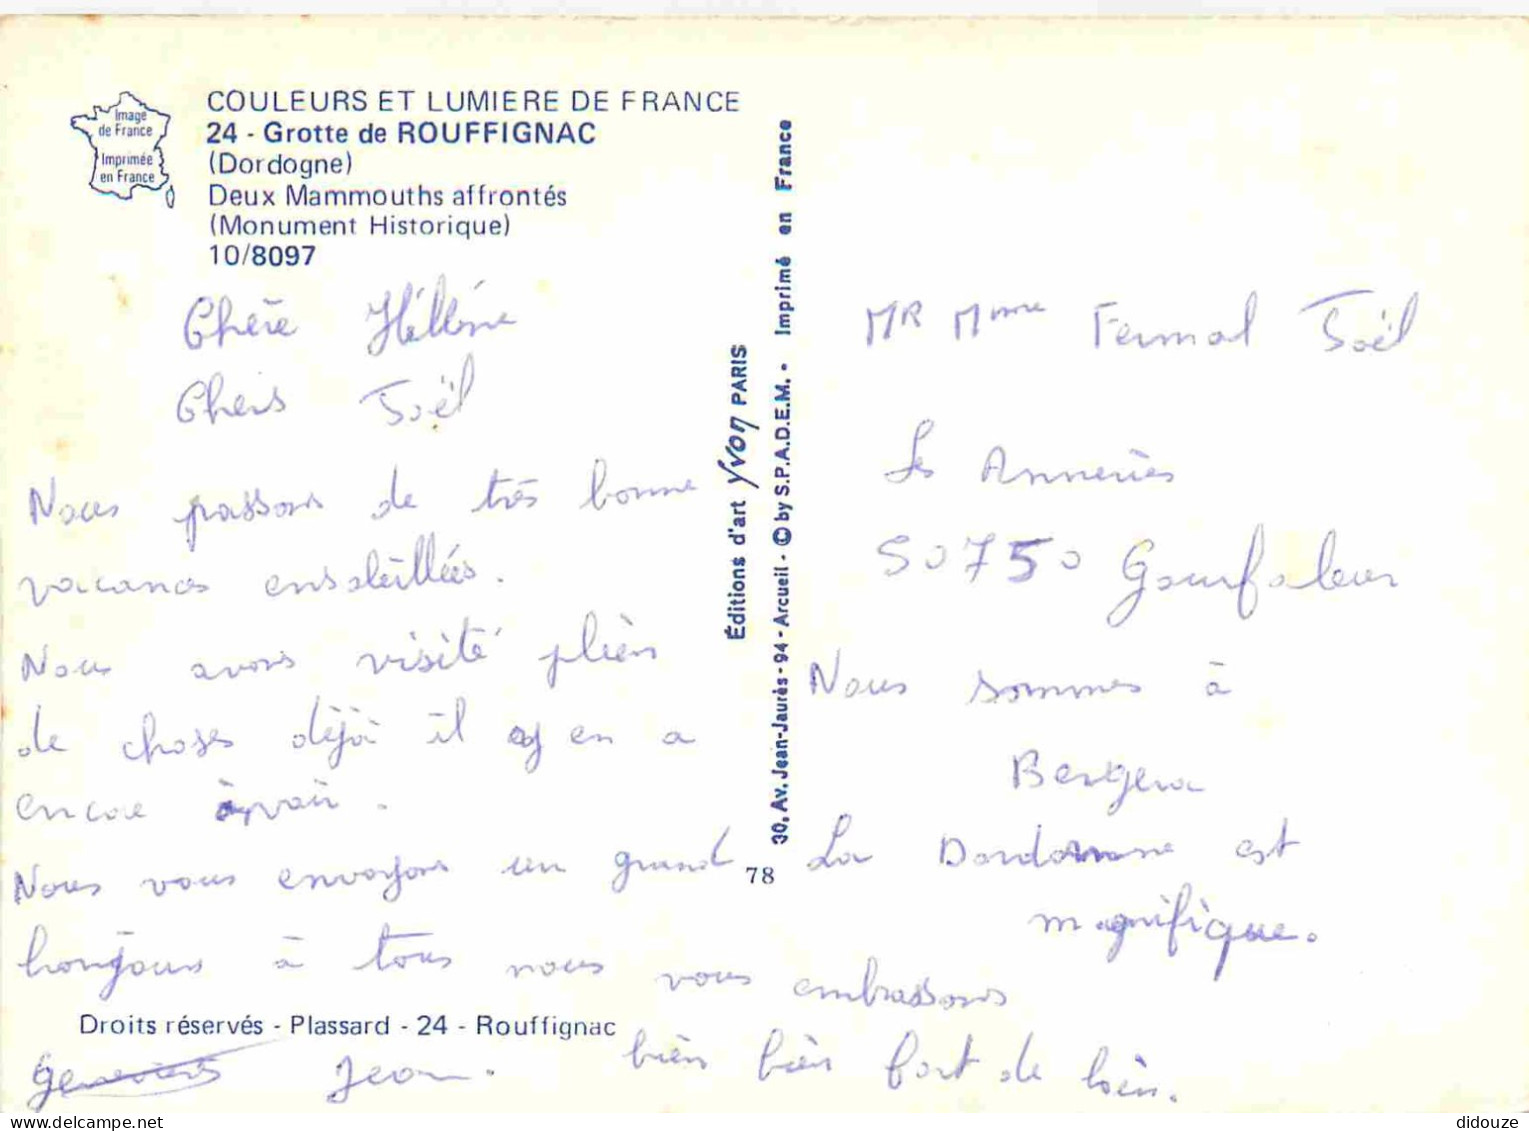 Image
de France
Imprimée
en France
COULEURS ET LUMIERE DE FRANCE
24 - Grotte de ROUFFIGNAC
(Dordogne)
Deux Mammouths affrontés
(Monument Historique)
10/8097
Chère Hélléne
Chers Joël
Nous passons de très bonne
vacances ensoleillées.
Nous avons visité plein
de choses déjà il y en a
encore à voir.
Nous vous envoyons un grand
bonjour à tous nous vous embrassons
bien bien fort de loin.
Droits réservés - Plassard - 24 - Rouffignac
Genevieve Jean.
Éditions d'art Yvon PARIS
30, Av. Jean-Jaurès - 94 - Arcueil - © by S.P.A.D.E.M. - Imprimé en France
78
MR Mme Fermal Joël
Les Anneries
50750 Gourfaleur
Nous sommes à
Bergera
La Dordonne est
magnifique.
didouze